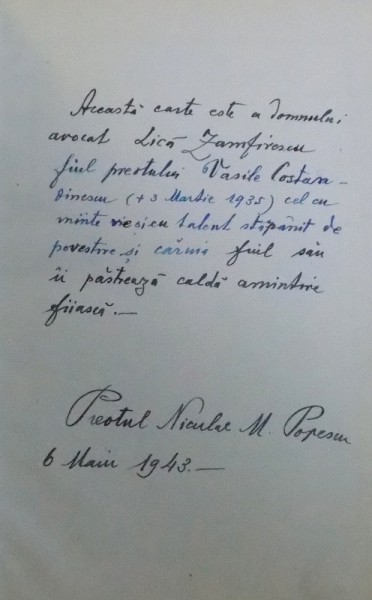 Această carte este a domnului
avocat Lică Zamfirescu
fiul preotului Vasile Costan-
dinescu (+ 3 Martie 1935) cel cu
minte și cu talent stăpânit de
povestire și căruia fiul său
îi păstrează caldă amintire
fiiască.—
Preotul Niculae M. Popescu
6 Maiu 1943.—